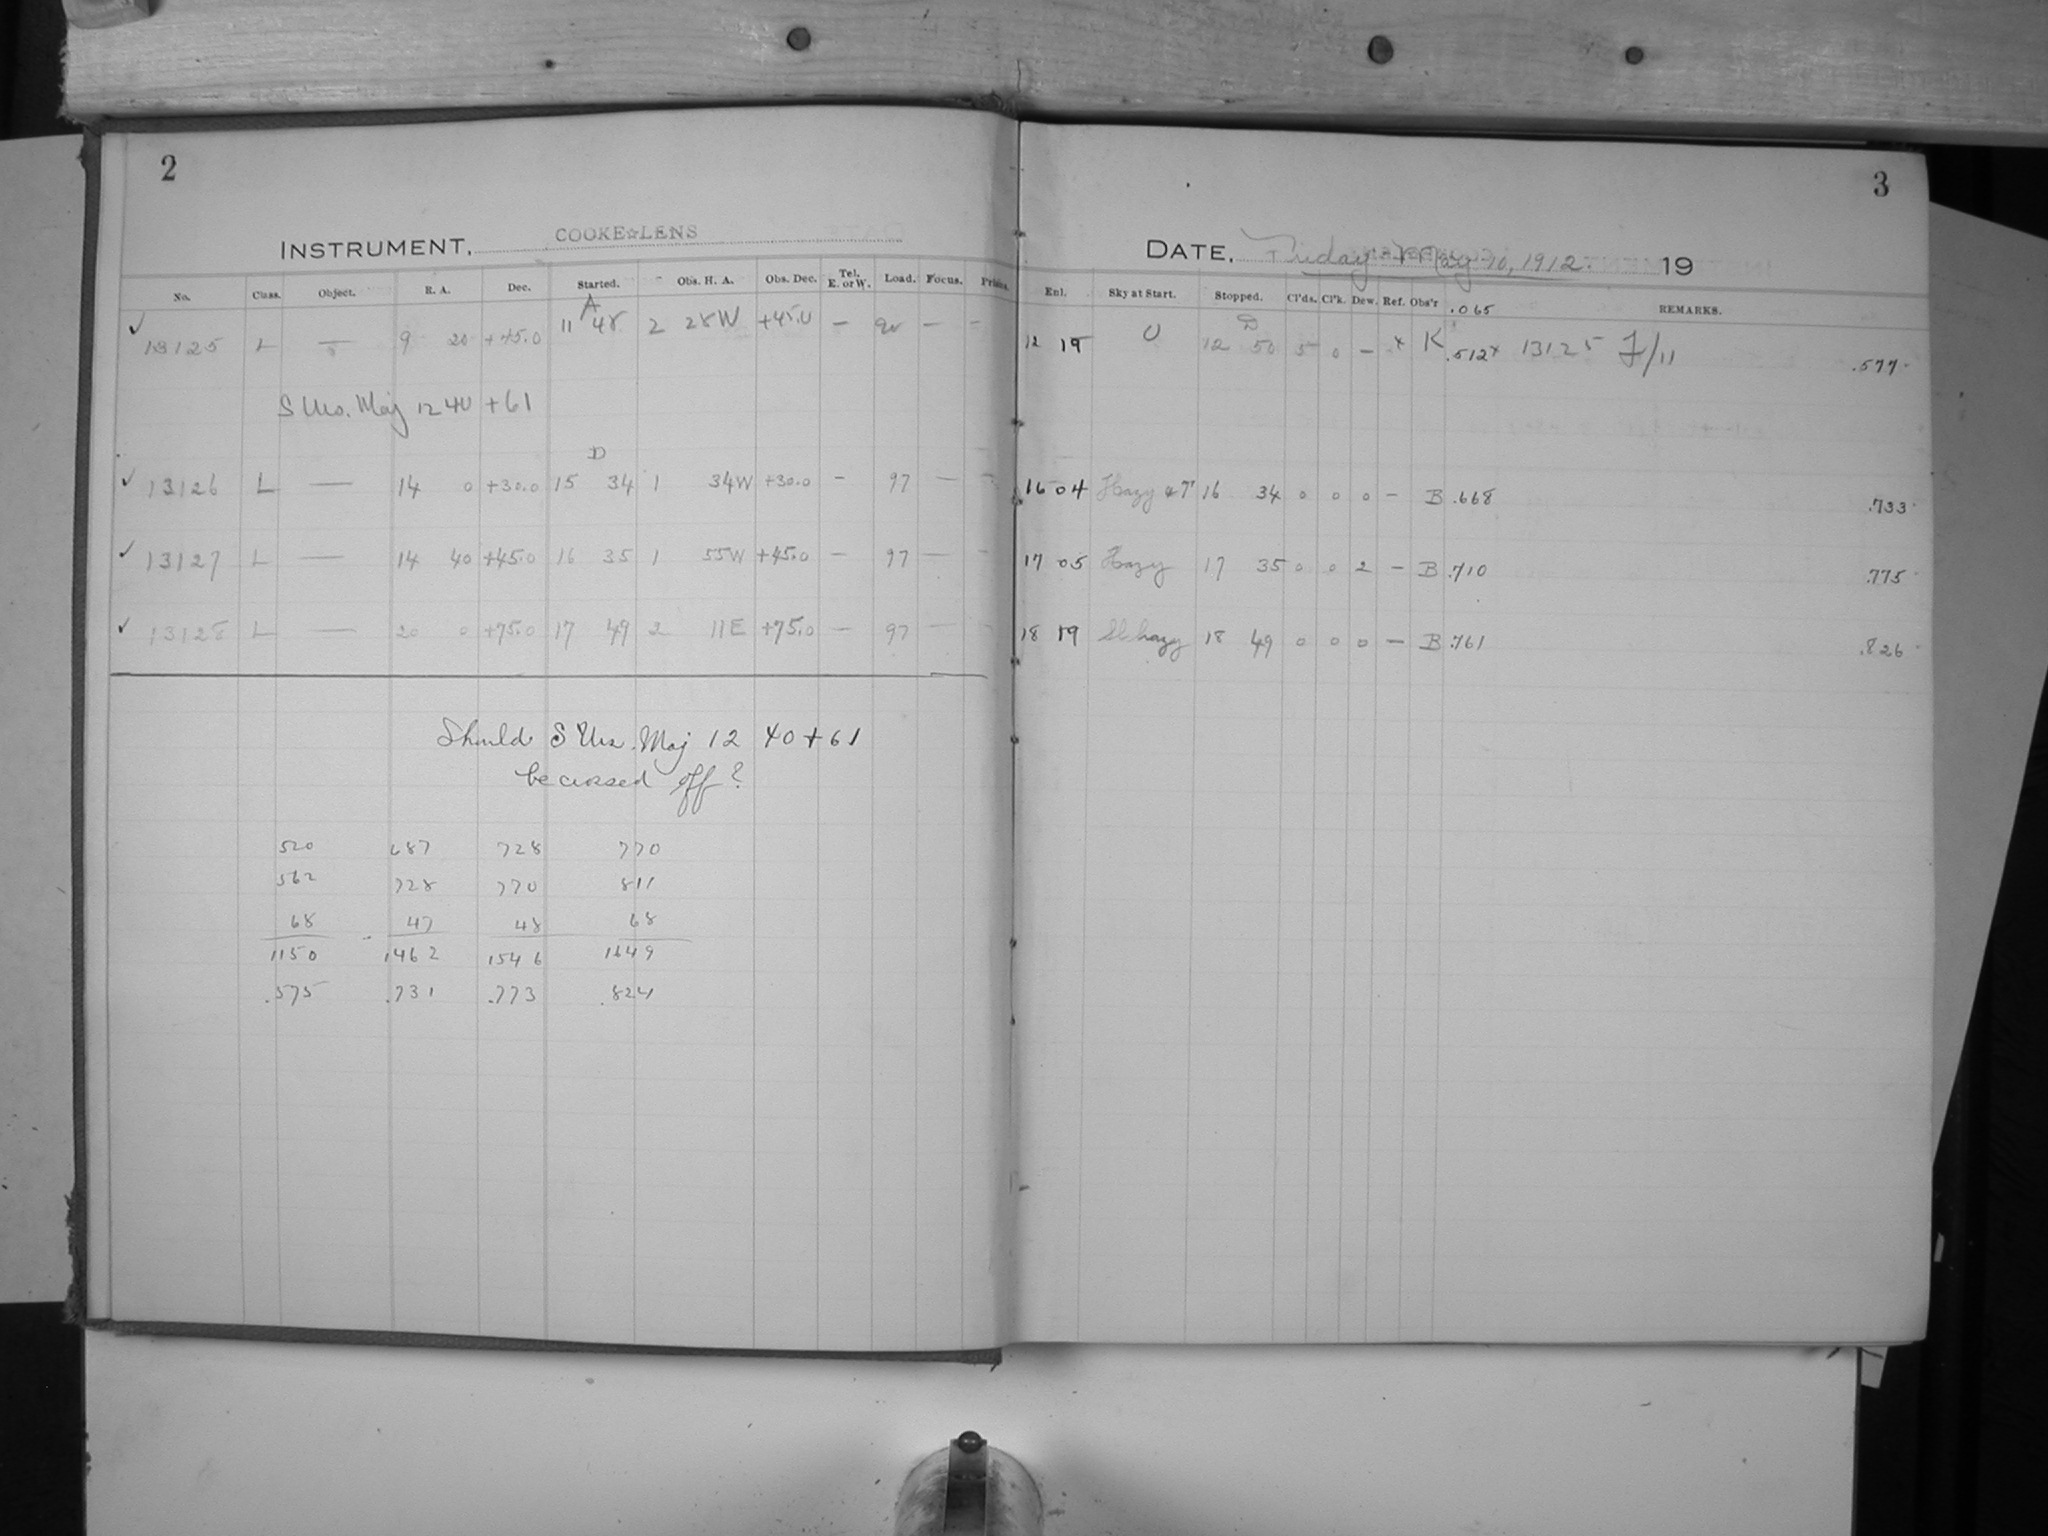 2
INSTRUMENT, COOKE☆LENS
No. Class. Object. R. A. Dec. Started. Obs. H. A. Obs. Dec. Tel. E. or W. Load. Focus.
A
✓ 13125 L — 9 20 +45.0 11 48 2 28W +45.0 — 90 — –
S Urs. Maj 12 40 +61
D
✓ 13126 L — 14 0 +30.0 15 34 1 34W +30.0 – 97 — –
✓ 13127 L — 14 40 +45.0 16 35 1 55W +45.0 – 97 — –
✓ 13128 L — 20 0 +75.0 17 49 2 11E +75.0 – 97 — –
Should S Urs. Maj 12 40 + 61
be crossed off?
520 687 728 770
562 728 770 811
68 47 48 68
1150 1462 1546 1649
.575 .731 .773 .824
3
DATE, Friday May 10, 1912. 19
Enl. Sky at Start. Stopped. Cl'ds. Cl'k. Dew. Ref. Obs'r .065 REMARKS.
D
12 19 O 12 50 5 0 — x K .512x 13125 F/11 .577
16 04 Hazy & T 16 34 0 0 0 – B .668 .733
17 05 Hazy 17 35 0 0 2 – B .710 .775
18 19 Sl. hazy 18 49 0 0 0 — B .761 .826